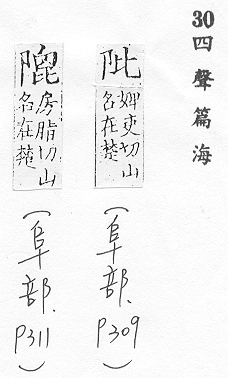 30 四聲篇海
阰
婢吏切山
名在楚
(阜部.P309)
房脂切山
名在楚
(阜部.P311)